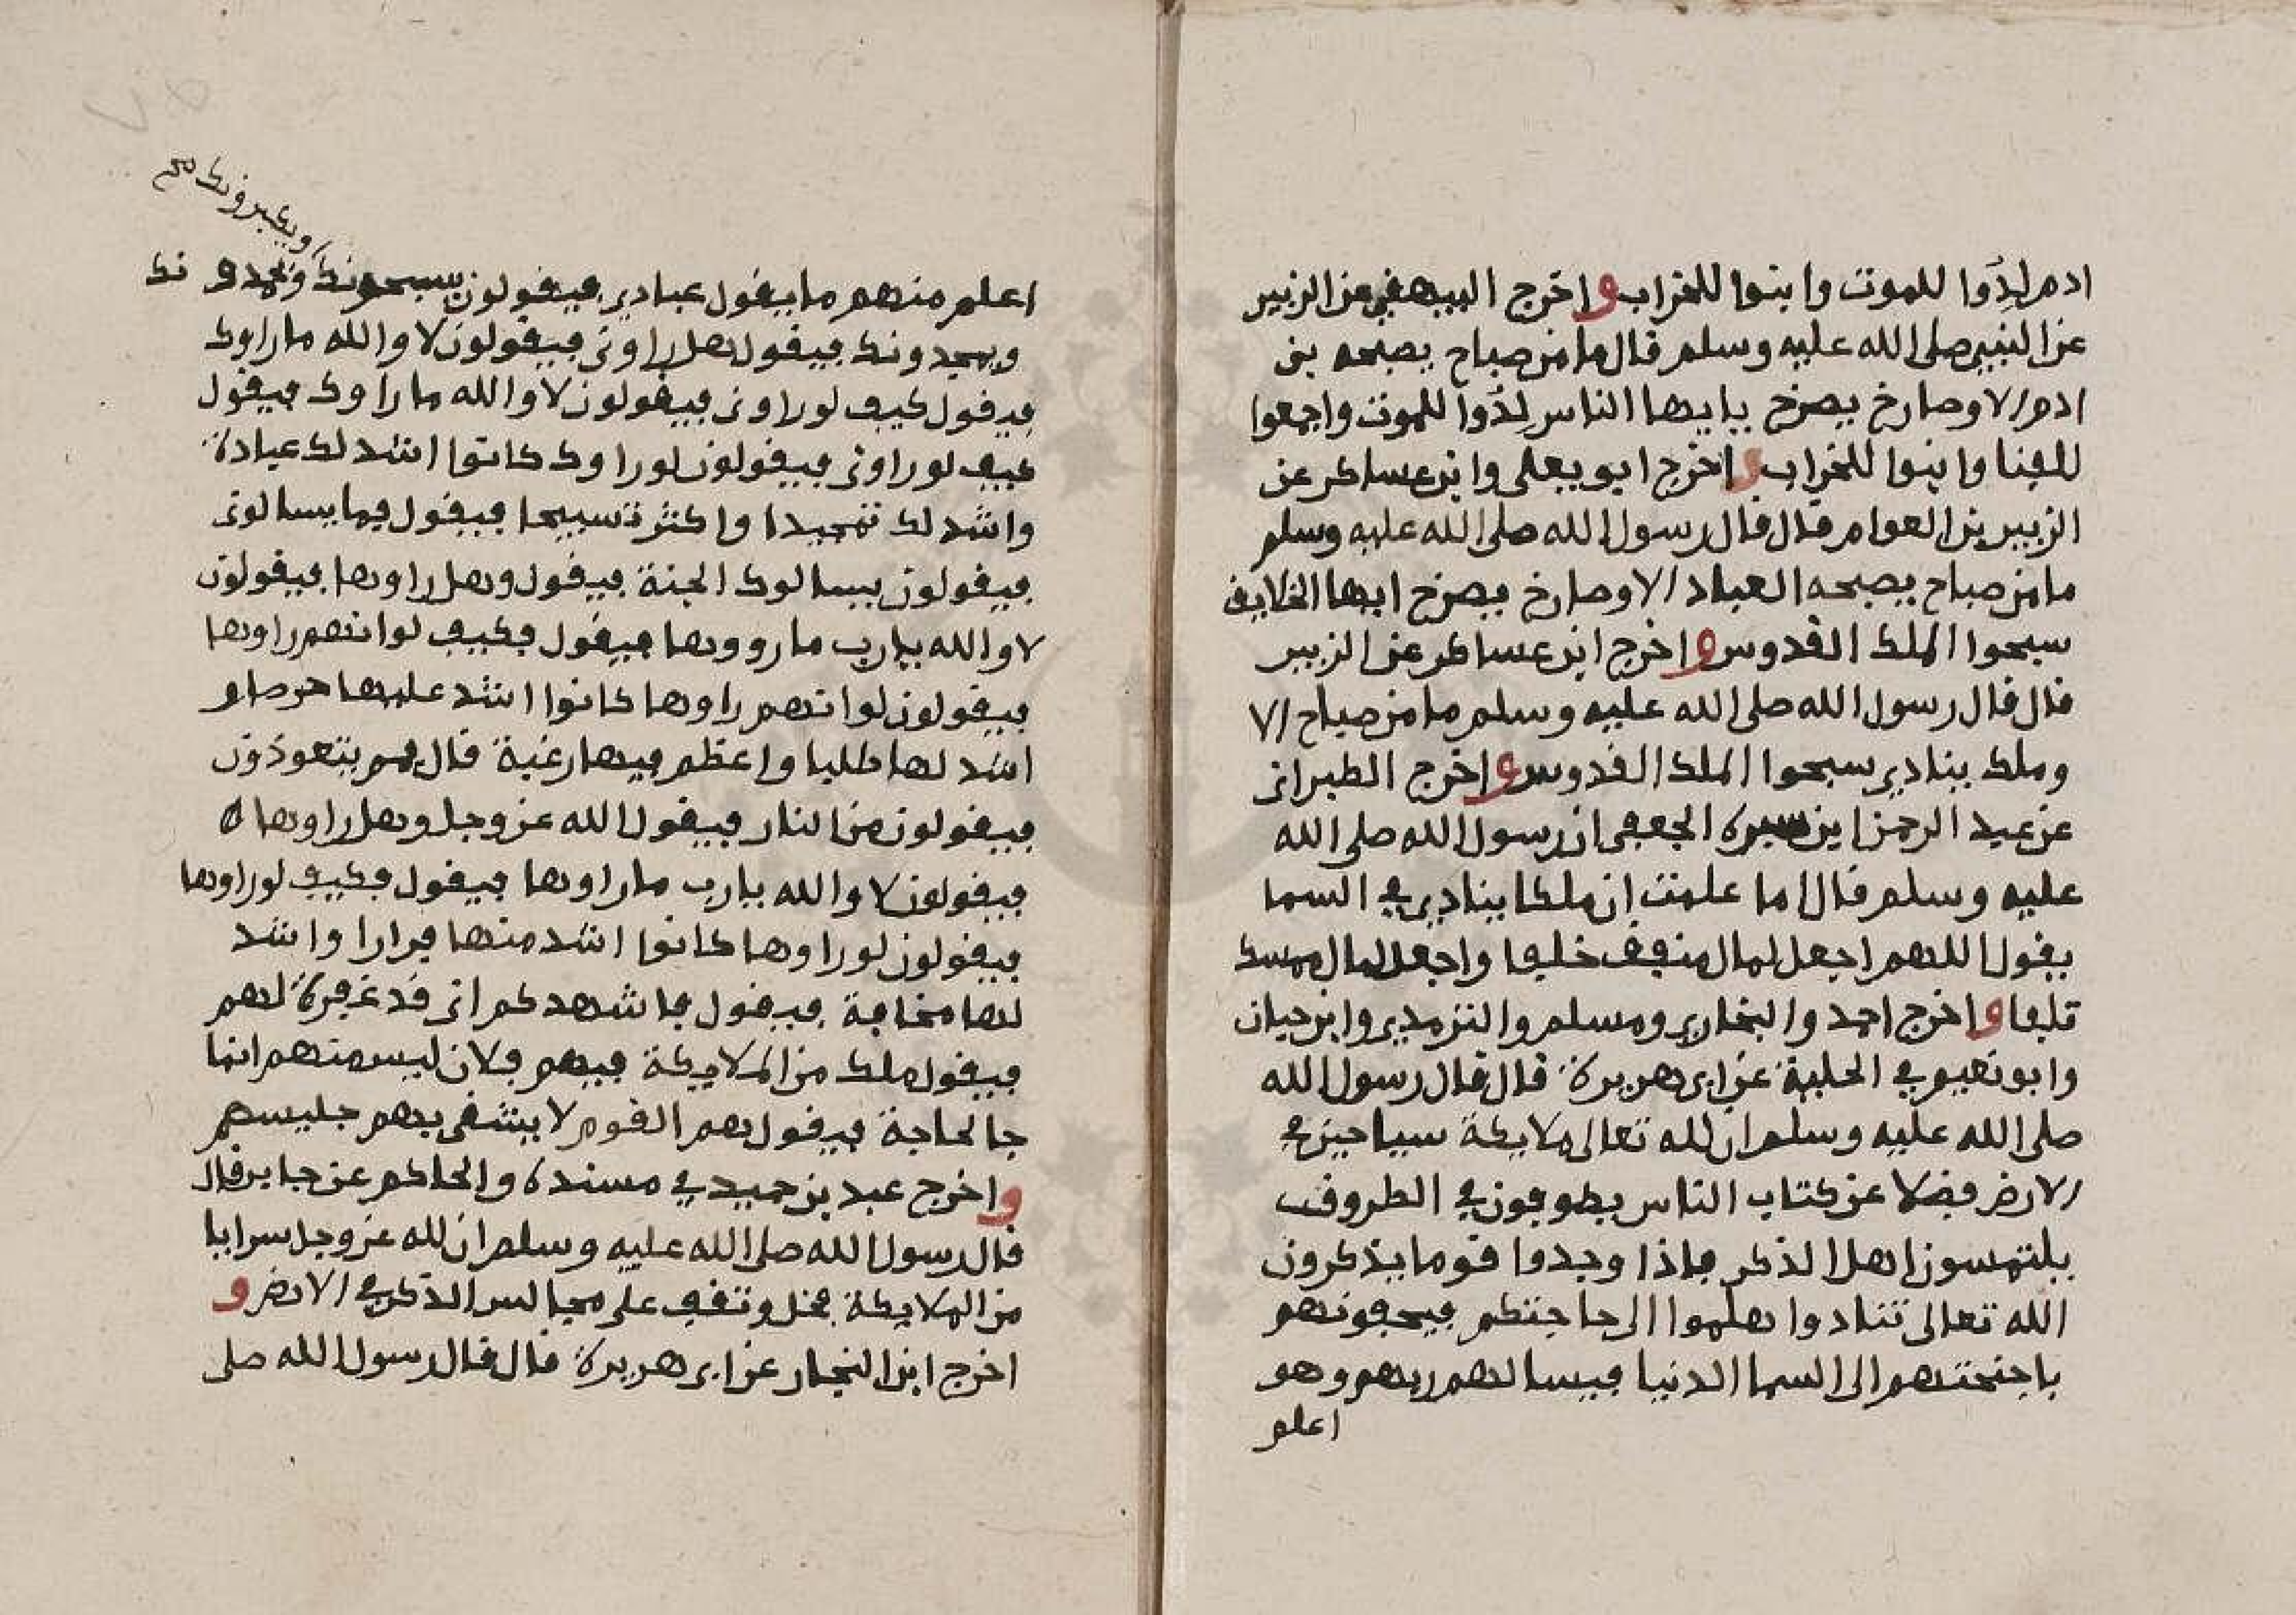 ادم لِدُوا للموت وابنوا للخراب واخرج البيهقي عن الزبير
عن النبي صلى الله عليه وسلم قال ما من صباح يصبحه بن
ادم الا وصارخ يصرخ يايها الناس لِدُوا للموت واجمعوا
للفنا وابنوا للخراب واخرج ابو يعلى وابن عساكر عن
الزبير بن العوام قال قال رسول الله صلى الله عليه وسلم
ما من صباح يصبحه العباد الا وصارخ يصرخ ايها الخلايق
سبحوا الملك القدوس واخرج ابن عساكر عن الزبير
قال قال رسول الله صلى الله عليه وسلم ما من صباح الا
وملك ينادي سبحوا الملك القدوس واخرج الطبراني
عن عبد الرحمن ابن سبرة الجعفي ان رسول الله صلى الله
عليه وسلم قال اما علمت ان ملكا ينادي في السما
يقول اللهم اجعل لمال منفق خلفا واجعل لمال ممسك
تلفا واخرج احمد والبخاري ومسلم والترمذي وابن حبان
وابو نعيم في الحلية عن ابي هريرة قال قال رسول الله
صلى الله عليه وسلم ان لله تعالى ملايكة سياحين في
الارض فضلا عن كتاب الناس يطوفون في الطروق
يلتمسون اهل الذكر فاذا وجدوا قوما يذكرون
الله تعالى تنادوا هلموا الى حاجتكم فيحفونهم
باجنحتهم الى السما الدنيا فيسالهم ربهم وهو
اعلم
ويكبرونك صح
اعلم منهم ما يقول عبادي فيقولون يسبحونك ويحمدونك
ويمجدونك فيقول هل راوني فيقولون لا والله ما راوك
فيقول كيف لو راوني فيقولون لا والله ما راوك فيقول
كيف لو راوني فيقولون لو راوك كانوا اشد لك عبادة
واشد لك تمجيدا واكثر تسبيحا فيقول فما يسالوني
فيقولون يسالوك الجنة فيقول وهل راوها فيقولون
لا والله يارب ما رووها فيقول فكيف لو انهم راوها
فيقولون لو انهم راوها كانوا اشد عليها حرصا و
اشد لها طلبا واعظم فيها رغبة قال فمم يتعوذون
فيقولون من النار فيقول الله عز وجل وهل راوها
فيقولون لا والله يارب ما راوها فيقول فكيف لو راوها
فيقولون لو راوها كانوا اشد منها فرارا واشد
لها مخافة فيقول فاشهدكم اني قد غفرة لهم
فيقول ملك من الملايكة فيهم فلان ليس منهم انما
جا لحاجة فيقول هم القوم لا يشقى بهم جليسهم
واخرج عبد بن حميد في مسنده والحاكم عن جابر قال
قال رسول الله صلى الله عليه وسلم ان لله عز وجل سرايا
من الملايكة تحل وتقف على مجالس الذكر في الارض و
اخرج ابن النجار عن ابي هريرة قال قال رسول الله صلى